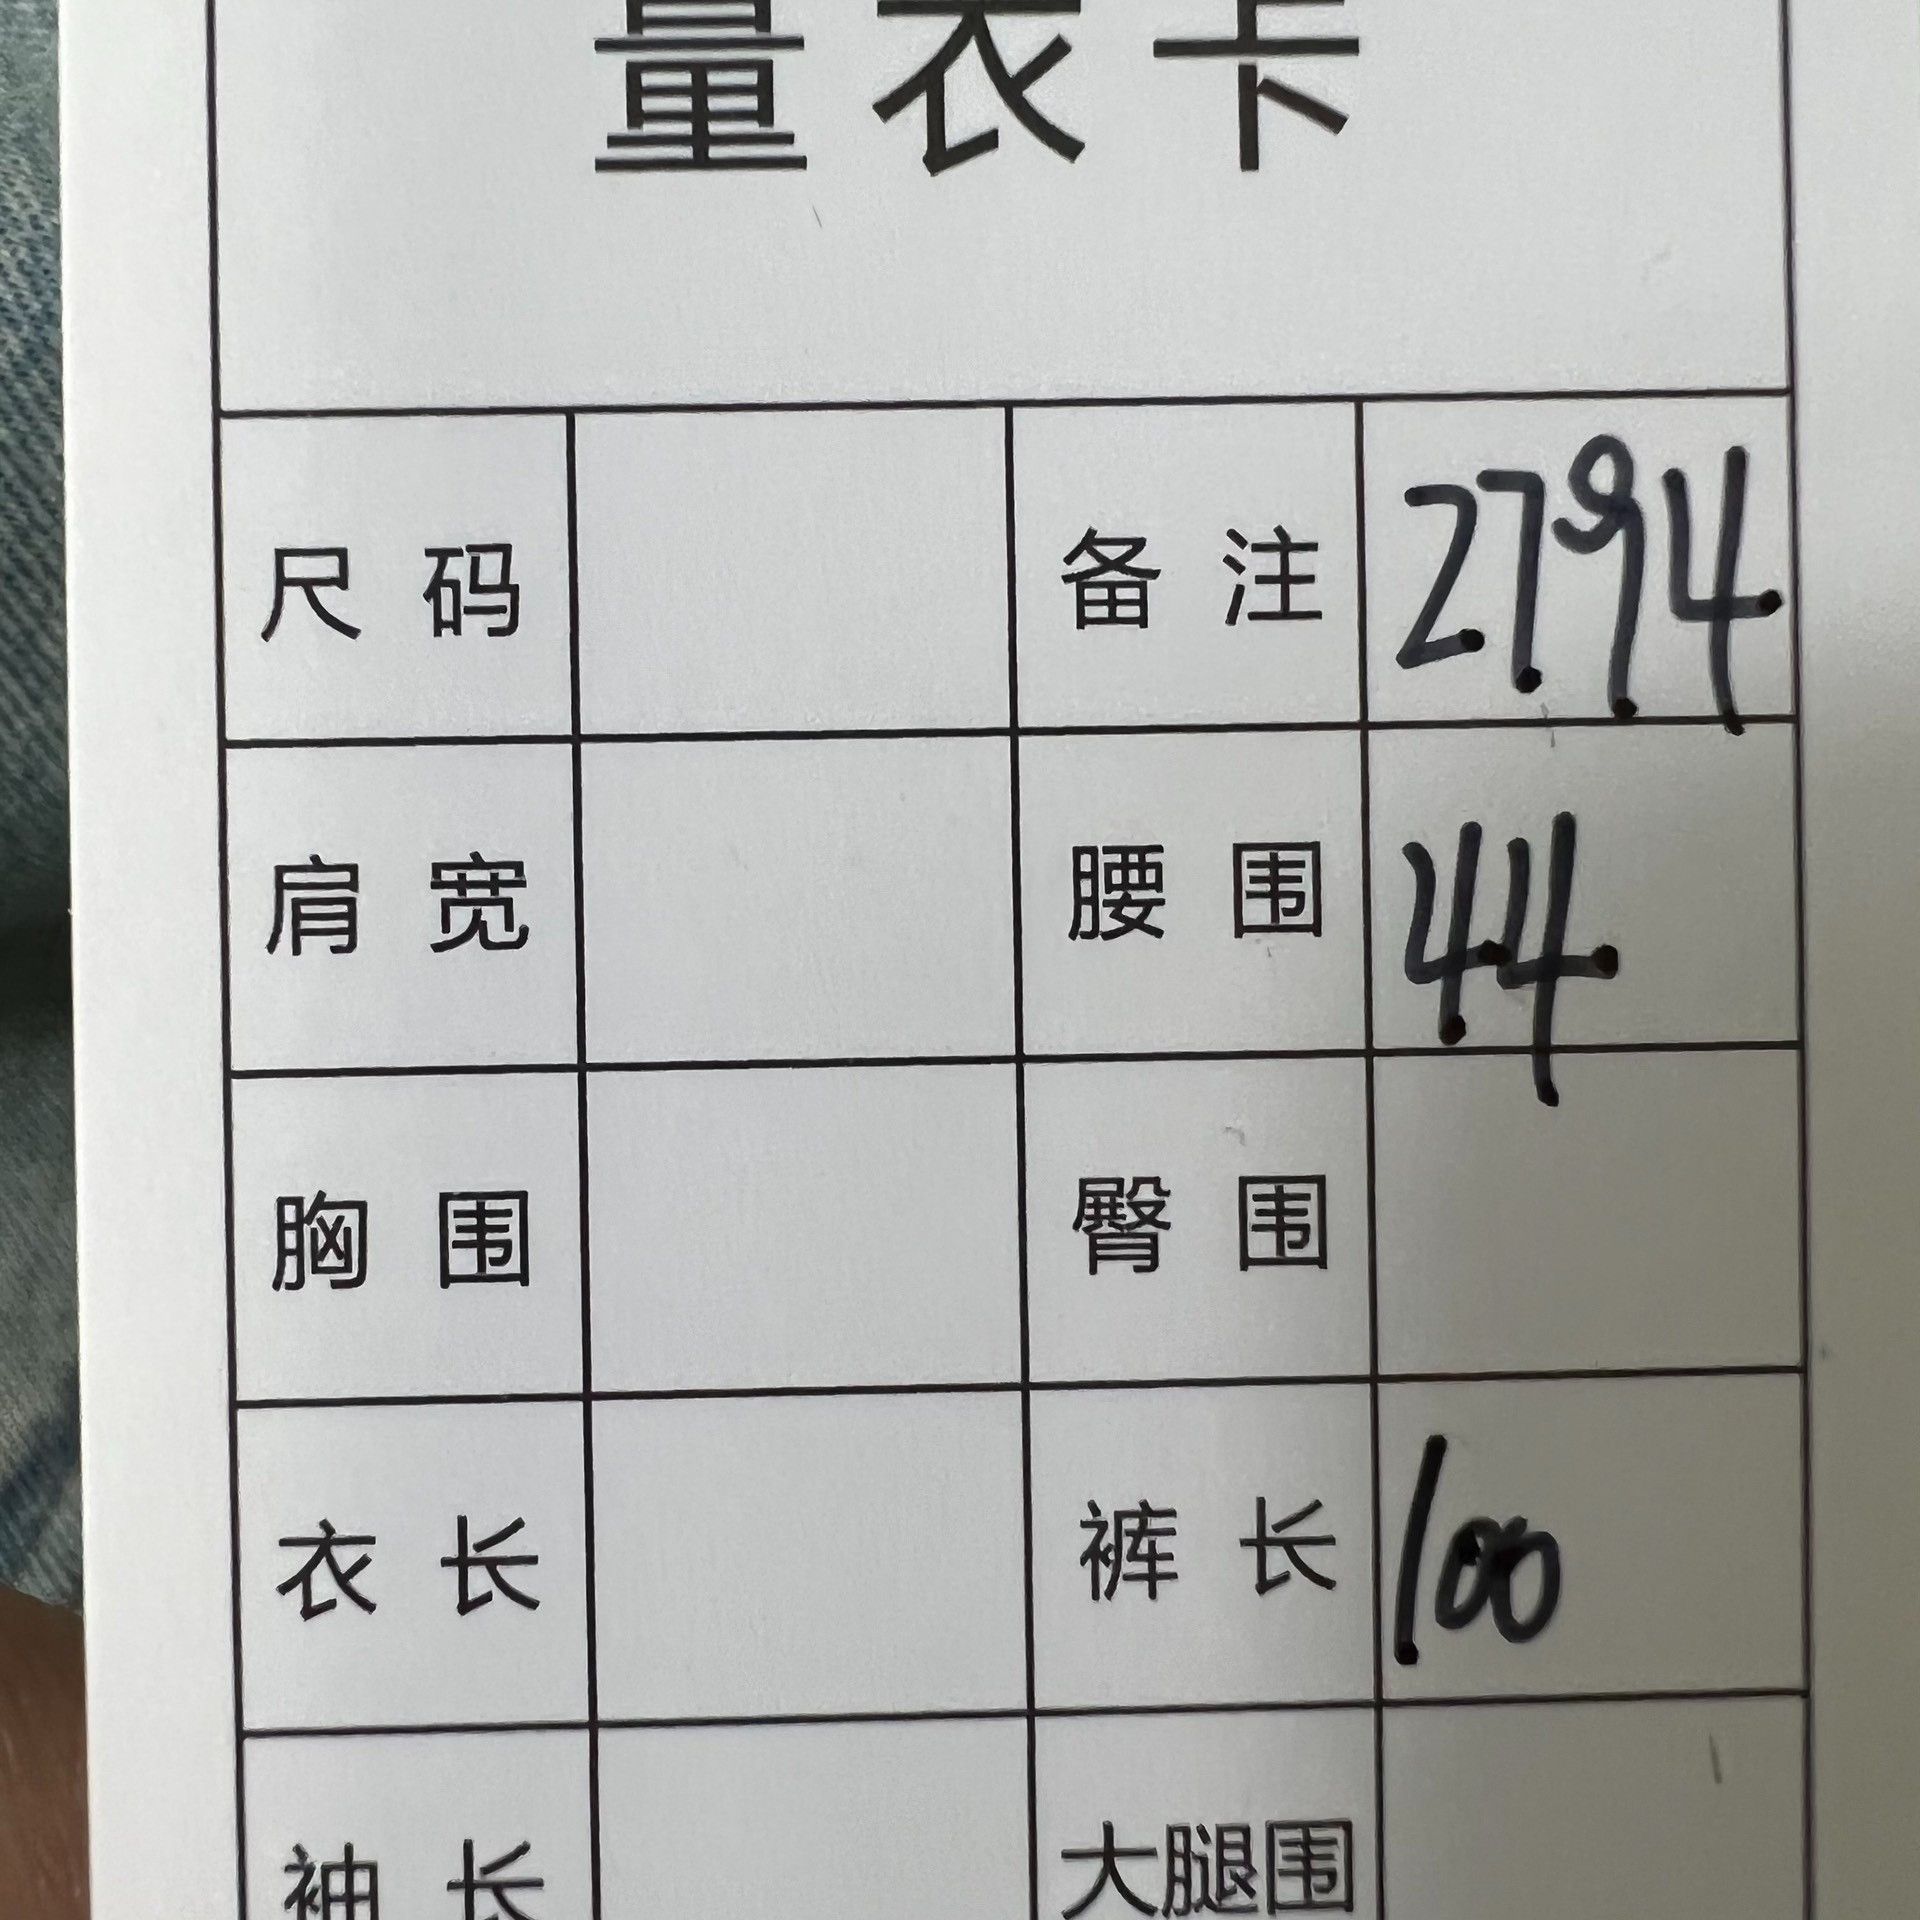 量衣卡
尺码 备注 2794
肩宽 腰围 44
胸围 臀围
衣长 裤长 100
袖长 大腿围